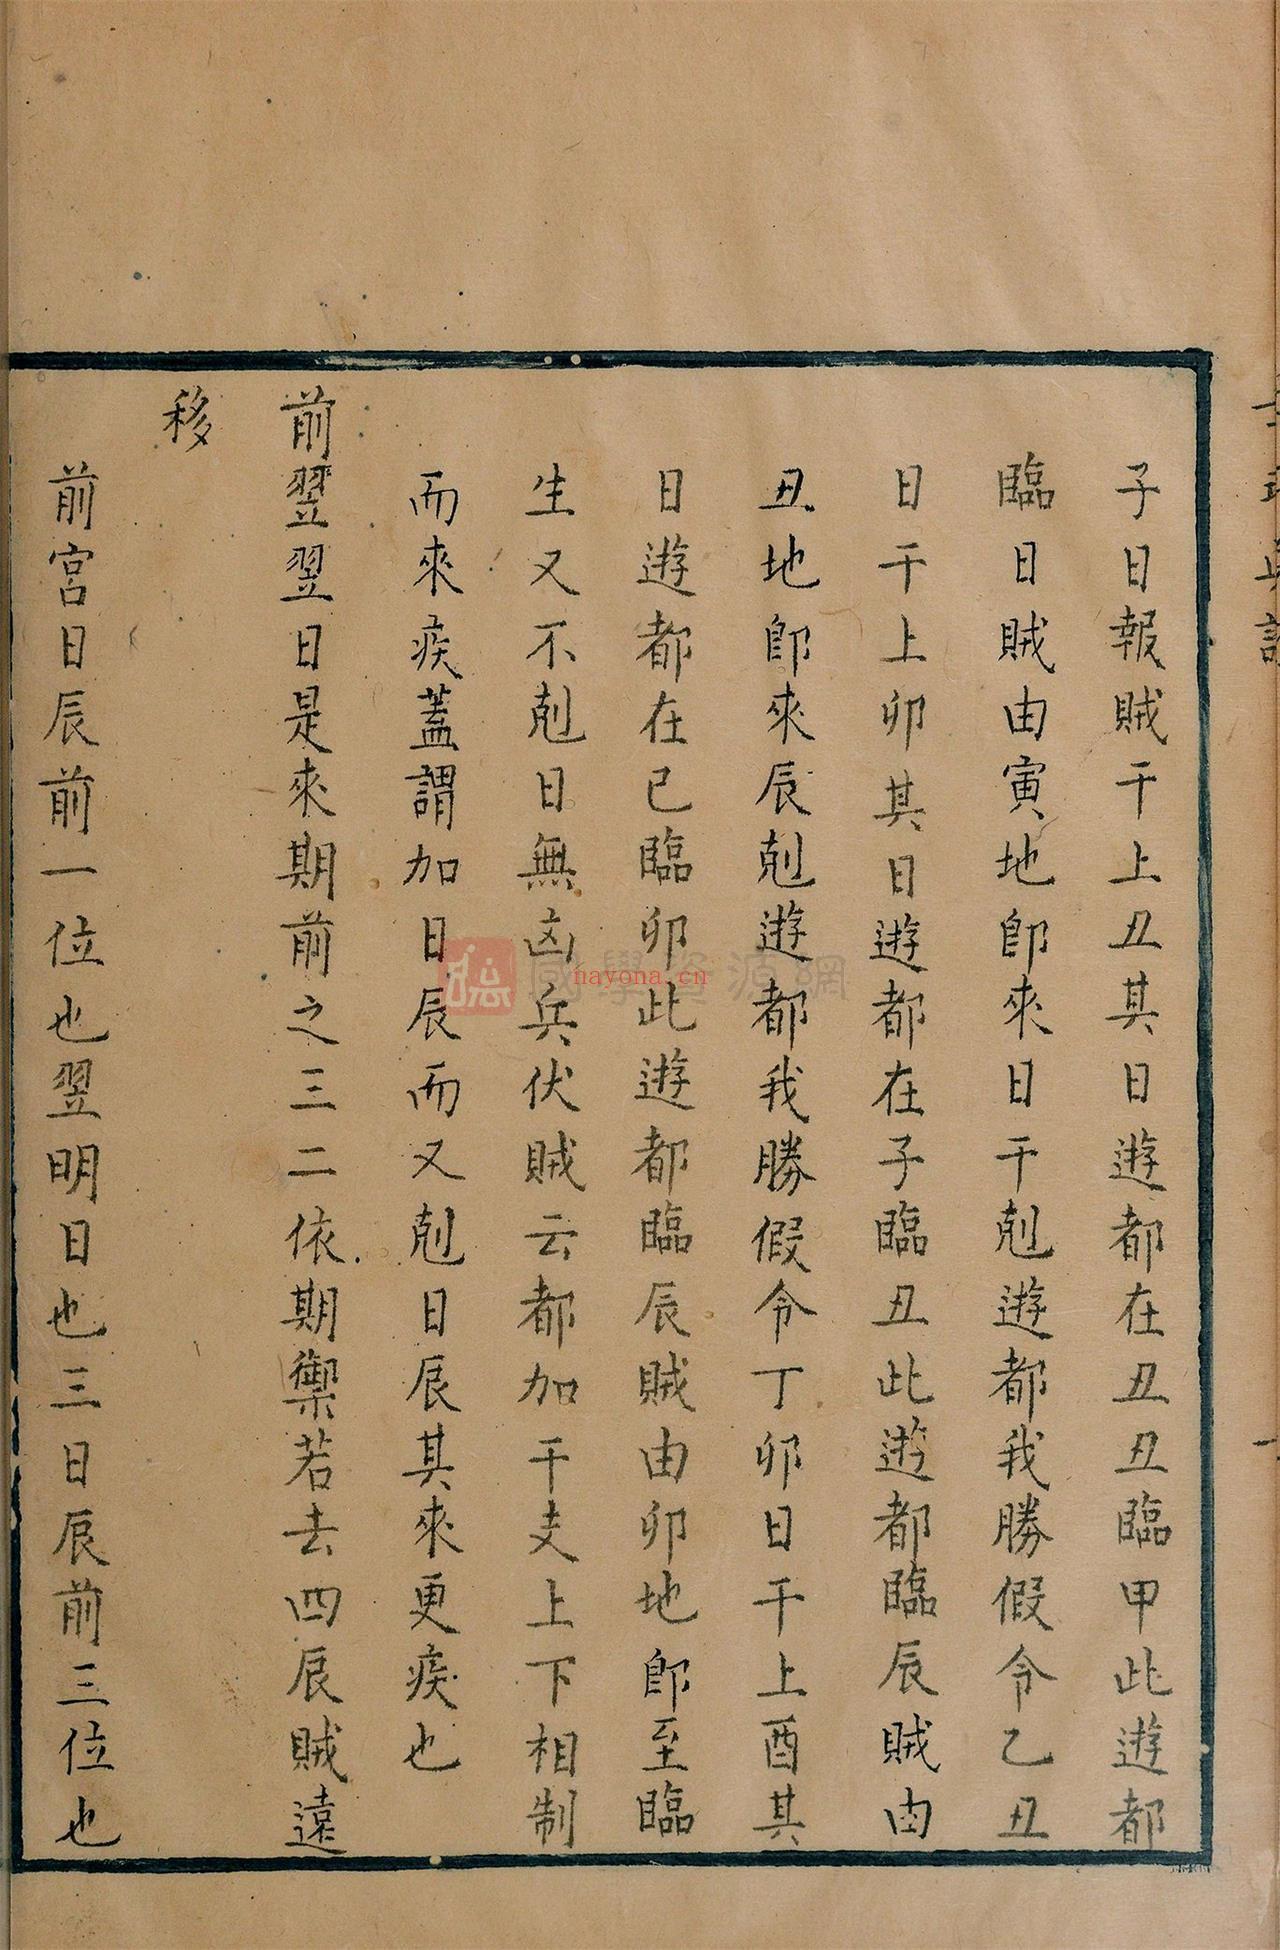 子日報賊干上丑其日遊都在丑丑臨甲此遊都
臨日賊由寅地即來日干剋遊都我勝假令乙丑
日干上卯其日遊都在子臨丑此遊都臨辰賊由
丑地即來辰剋遊都我勝假令丁卯日干上酉其
日遊都在巳臨卯此遊都臨辰賊由卯地即至臨
生又不剋日無凶兵伏賊云都加干支上下相制
而來疾蓋謂加日辰而又剋日辰其來更疾也
前翌翌日是來期前之三二依期禦若去四辰賊遠
移
前宮日辰前一位也翌明日也三日辰前三位也
國學資源網
nayona.cn